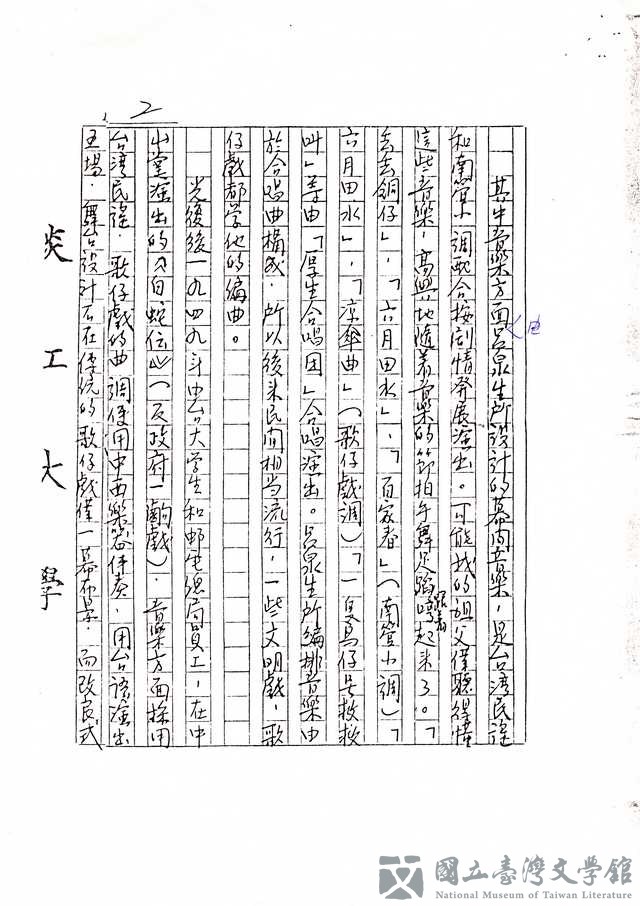 2
其中音樂方面呂泉生所設計的幕間音樂,是台湾民謠
曲
和南管小調配合按劇情発展演出。可能我的祖父僅聽得懂
這些音樂,高興地隨着音樂的節拍手舞足蹈哼起来了。「
跟着
去去銅仔」,「六月田水」,「百家春」(南管小調)「
六月田水」,「凉傘曲」(歌仔戲調)「一隻鳥仔号救救
叫」等由「厚生合唱团」合唱演出。呂泉生所編排音樂由
於合唱曲構成,所以後来民間相当流行,一些文明戲,歌
仔戲都学他的編曲。
光復後一九四九年由台大学生和郵电總局員工,在中
山堂演出的《白蛇传》(反政府一齣戲),音樂方面採用
台湾民謠,歌仔戲的曲調使用中西樂器伴奏,用台語演出
主場,舞台設計不在傳統的歌仔戲僅一幕布景,而改良式
淡工大學
國立臺灣文學館
National Museum of Taiwan Literature